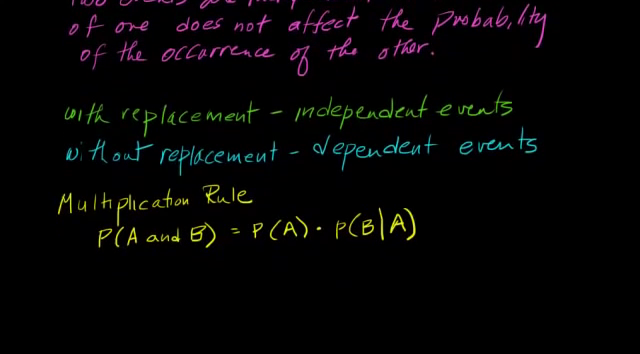 of one does not affect the probability
of the occurrence of the other.
with replacement - independent events
without replacement - dependent events
Multiplication Rule
P(A and B) = P(A) · P(B|A)